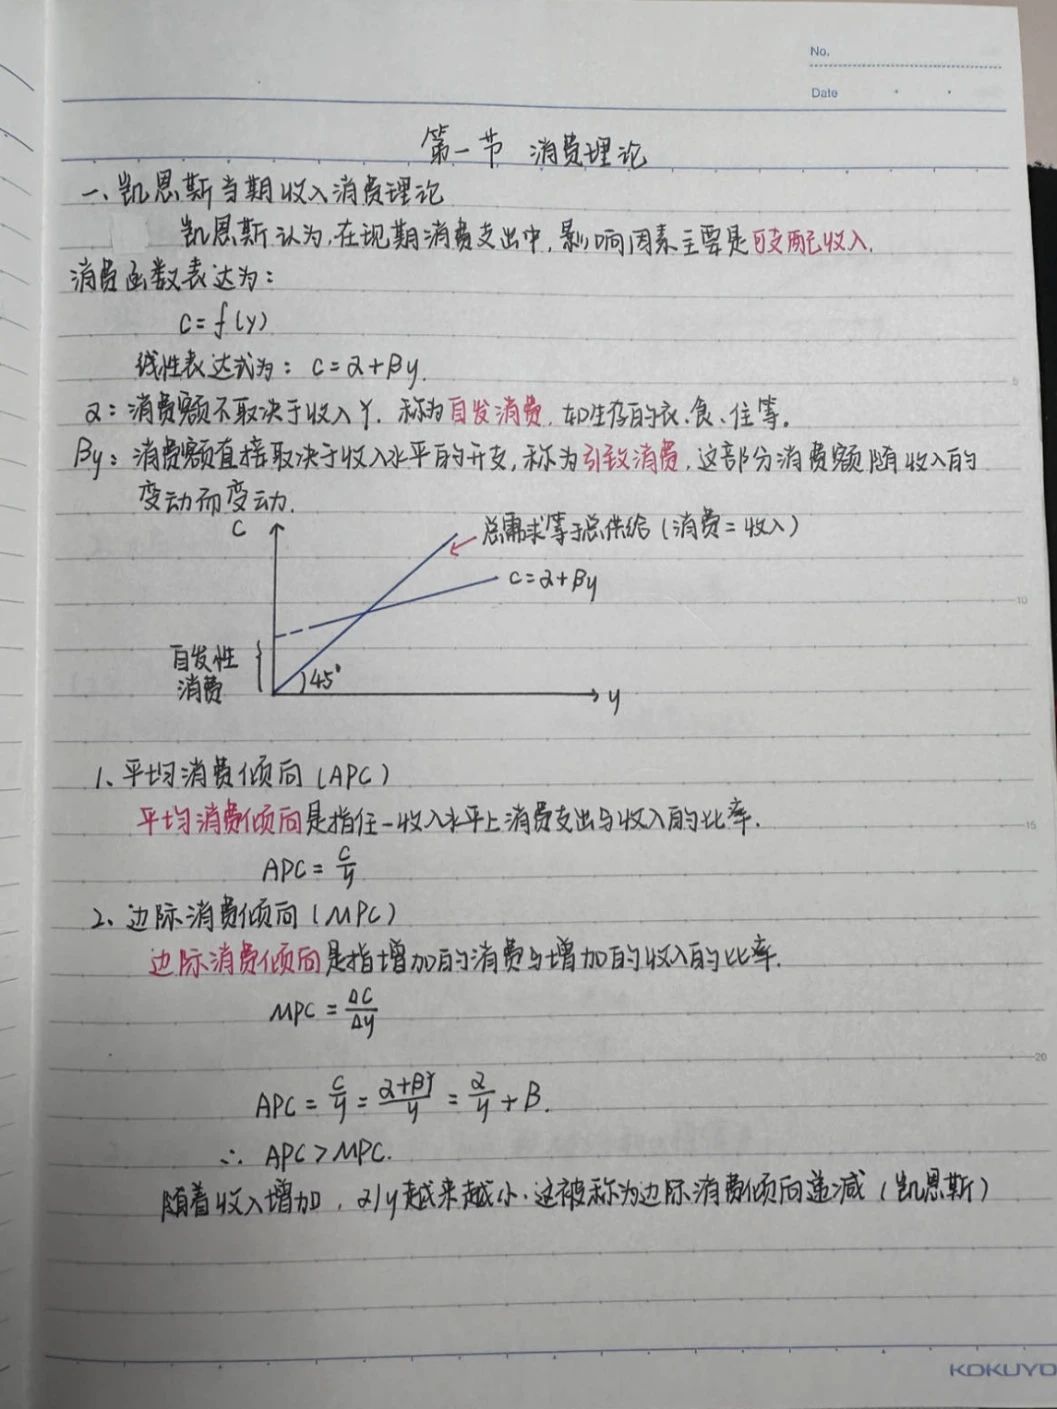 No.
Date
第一节 消费理论
一、凯恩斯当期收入消费理论
凯恩斯认为,在现期消费支出中,影响因素主要是可支配收入.
消费函数表达为:
C=f(y)
线性表达式为: C=α+βy.
α:消费额不取决于收入Y.称为自发消费,如生存的衣、食、住等。
βy:消费额直接取决于收入水平的开支,称为引致消费,这部分消费额随收入的
变动而变动.
C
总需求等于总供给(消费=收入)
C=α+βy
自发性
消费
45°
y
1、平均消费倾向(APC)
平均消费倾向是指任一收入水平上消费支出与收入的比率.
APC=C/y
2、边际消费倾向(MPC)
边际消费倾向是指增加的消费与增加的收入的比率.
MPC=ΔC/Δy
APC=C/y=(α+βY)/y=α/y+β.
∴ APC>MPC.
随着收入增加,α/y越来越小.这被称为边际消费倾向递减(凯恩斯)
5
10
15
20
KOKUYO